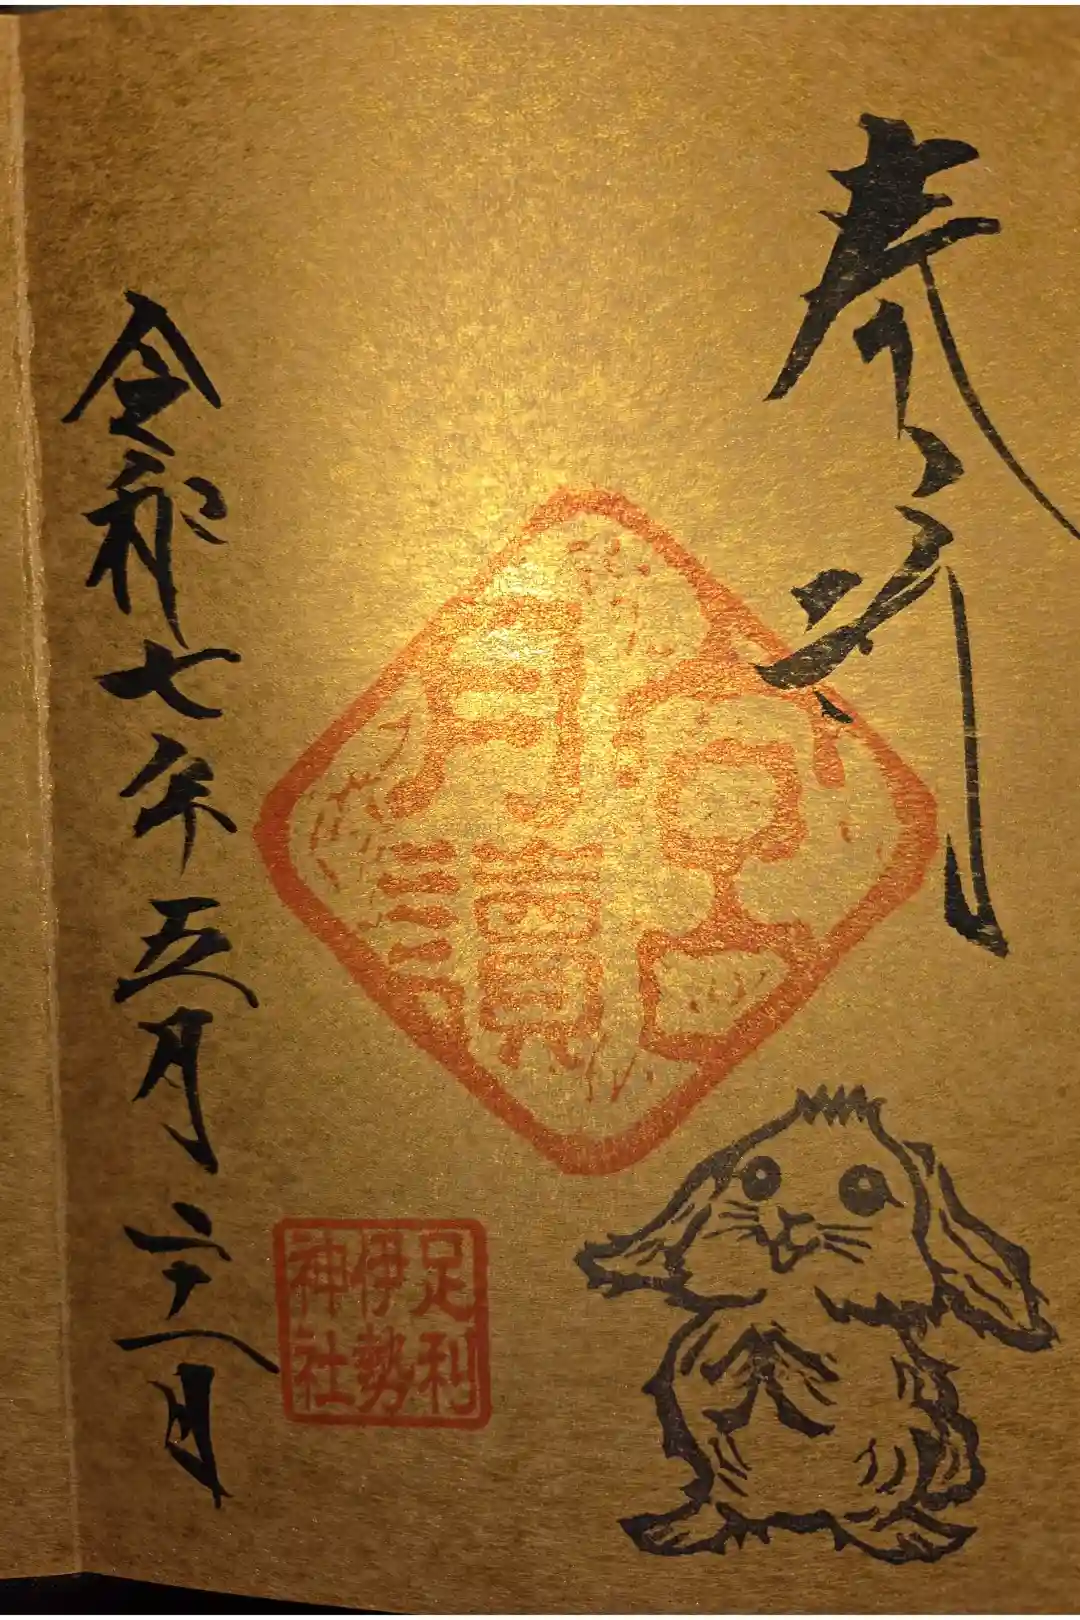 奉拝
月讀宮
令和七年五月二十一日
足利
伊勢
神社